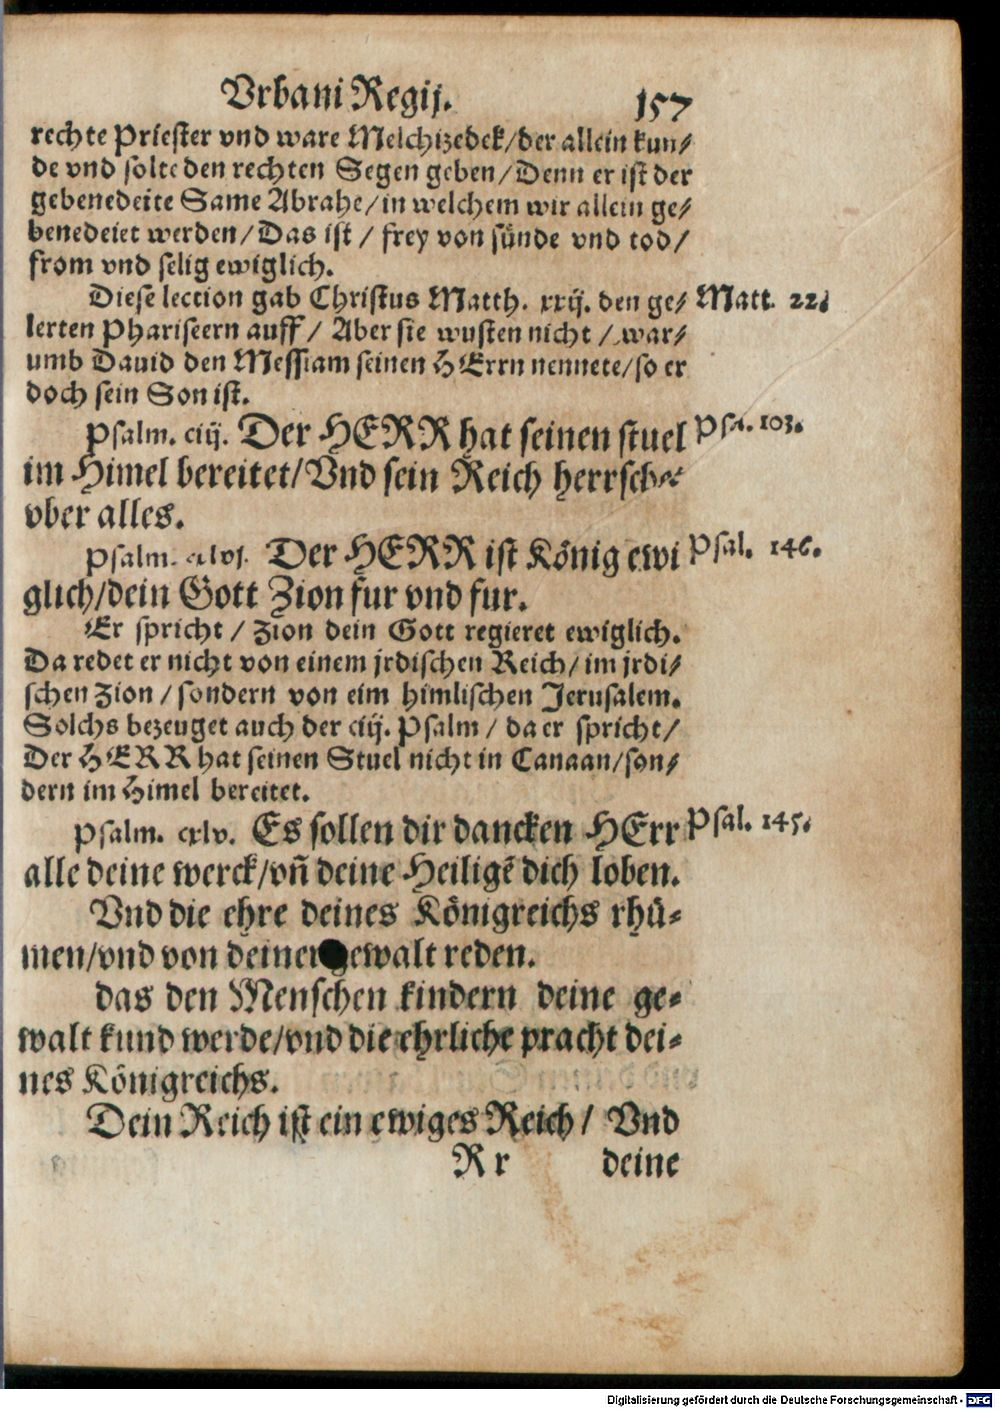 Vrbani Regij. 157
rechte Priester vnd ware Melchizedek/der allein kun/
de vnd solte den rechten Segen geben/Denn er ist der
gebenedeite Same Abrahe/in welchem wir allein ge/
benedeiet werden/Das ist / frey von sünde vnd tod/
from vnd selig ewiglich.
Diese lection gab Christus Matth. xxij. den ge/ Matt. 22.
lerten Phariseern auff/ Aber sie wusten nicht / war/
umb Dauid den Messiam seinen HErrn nennete/so er
doch sein Son ist.
Psalm. ciij. Der HERR hat seinen stuel Psa. 103.
im Himel bereitet/Vnd sein Reich herrschet
vber alles.
Psalm. cxlvj. Der HERR ist König ewi Psal. 146.
glich/dein Gott Zion fur vnd fur.
Er spricht / Zion dein Gott regieret ewiglich.
Da redet er nicht von einem jrdischen Reich/im jrdi/
schen Zion /sondern von eim himlischen Jerusalem.
Solchs bezeuget auch der ciij. Psalm / da er spricht/
Der HERR hat seinen Stuel nicht in Canaan/son/
dern im Himel bereitet.
Psalm. cxlv. Es sollen dir dancken HErr Psal. 145.
alle deine werck/vñ deine Heiligẽ dich loben.
Vnd die ehre deines Königreichs rhü-
men/vnd von deiner gewalt reden.
das den Menschen kindern deine ge-
walt kund werde/vnd die ehrliche pracht dei-
nes Königreichs.
Dein Reich ist ein ewiges Reich / Vnd
R r deine
Digitalisierung gefördert durch die Deutsche Forschungsgemeinschaft - DFG